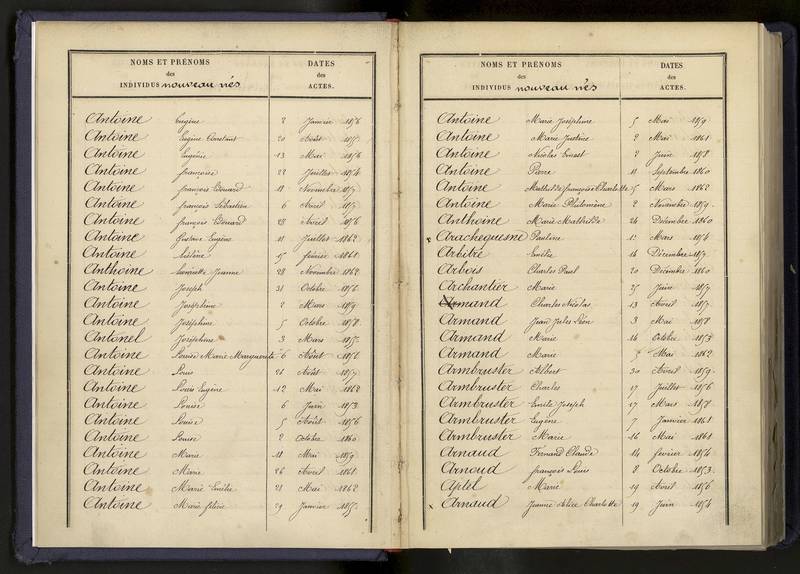 NOMS ET PRÉNOMS
des
INDIVIDUS nouveau nés
DATES
des
ACTES.
Antoine Eugène 2 Janvier 1856
Antoine Eugène Constant 20 Août
Antoine Eugénie 13 Mai 1856
Antoine françoise 22 Juillet 1854
Antoine françois Edouard 18 Novembre
Antoine françois Sébastien 6 Avril
Antoine françois Edouard 23 Avril 1856
Antoine Gustave Eugène 11 Juillet 1862
Antoine 15 février 1861
Anthoine Henriette Jeanne 28 Novembre 1862
Antoine Joseph 31 Octobre 1856
Antoine Joséphine 2 Mars 1859
Antoine Joséphine 5 Octobre 1858
Antonel Joséphine 3 Mars
Antoine Louise Marie Marguerite 6 Août 1856
Antoine Louis 21 Août
Antoine Louis Eugène 12 Mai 1862
Antoine Louise 6 Juin 1853
Antoine Louise 5 Août 1856
Antoine Louise 2 Octobre 1860
Antoine Marie 11 Mai 1859
Antoine Marie 26 Avril 1861
Antoine Marie Emélie 21 Mai 1862
Antoine Marie 29 Janvier
NOMS ET PRÉNOMS
des
INDIVIDUS nouveau nés
DATES
des
ACTES.
Antoine Marie Joséphine 5 Mai 1859
Antoine Marie Justine 2 Mai 1861
Antoine Nicolas Ernest 2 Juin 1858
Antoine Pierre 11 Septembre 1860
Antoine Mathilde françoise Charlotte 5 Mars 1862
Antoine Marie Philomène 2 Novembre 1859
Anthoine Marie Mathilde 24 Décembre 1860
Arachequesne Pauline Mars 1854
Arbitre Emélie 16 Décembre
Arbois Charles Paul 20 Décembre 1860
Archantier Marie 25 Juin
Armand Charles Nicolas 13 Avril
Armand Jean Jules Léon 3 Mai 1858
Armand Marie 14 Octobre 1853
Armand Marie 7 Mai 1862
Armbruster Albert 30 Avril 1859
Armbruster Charles 17 Juillet 1856
Armbruster Emile Joseph 17 Mars 1858
Armbruster Eugène 7 Janvier 1861
Armbruster Marie 16 Mai 1861
Arnaud Fernand Claude 14 février 1854
Arnoud françois Louis 8 Octobre 1853
Aptel Marie 19 Avril 1856
Arnaud Jeanne Alice Charlotte 19 Juin 1854